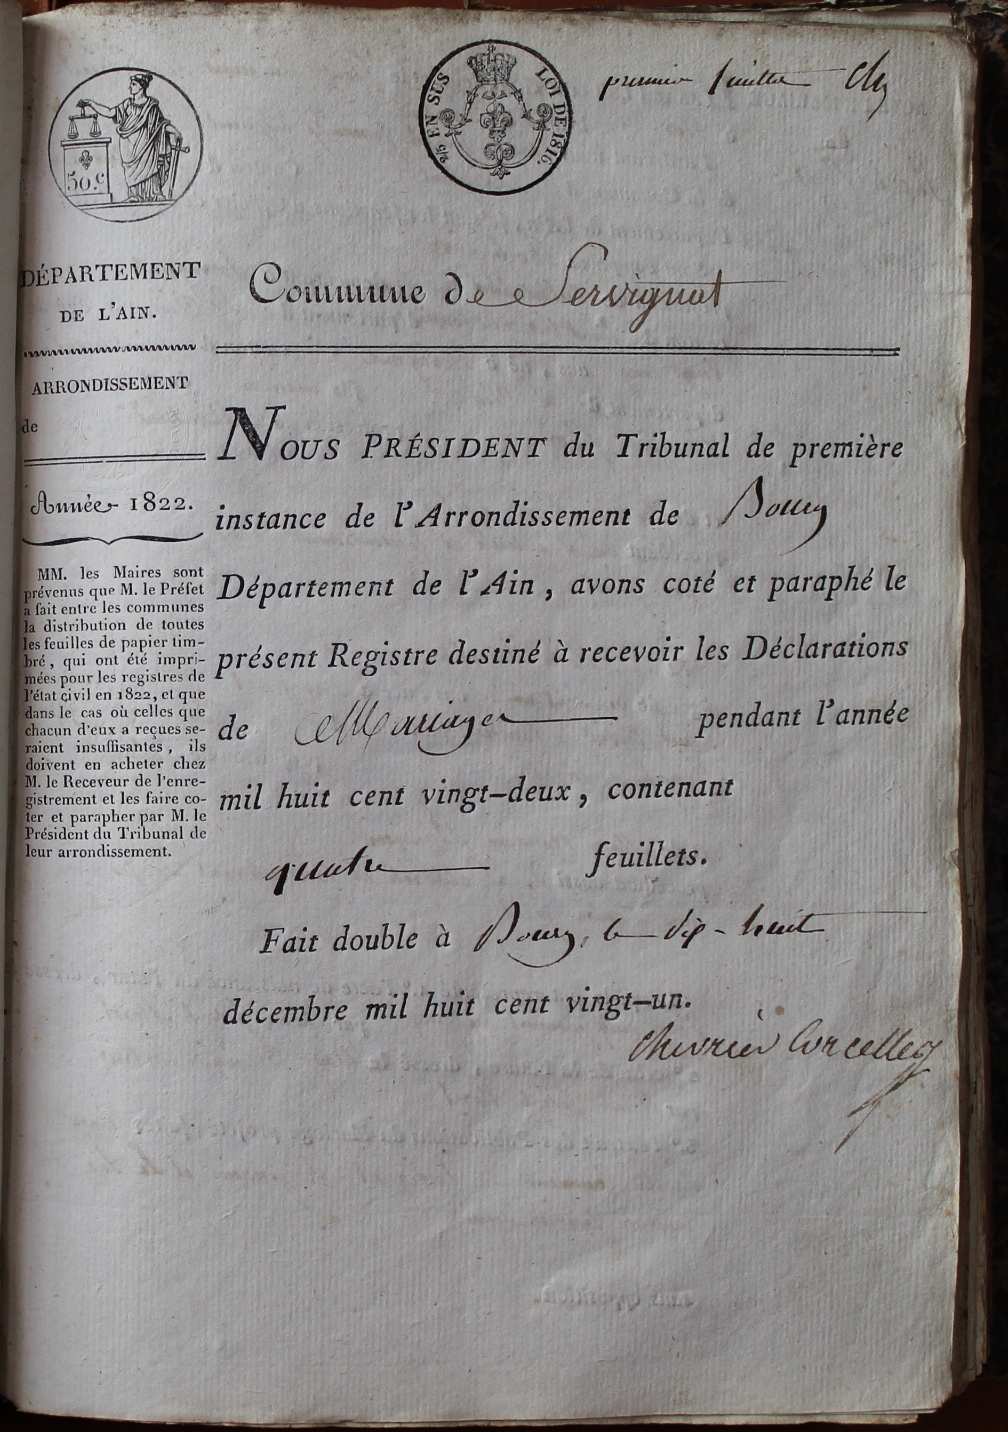 50.C
2/5 EN SUS LOI DE 1816.
premier feuillet Ch
DÉPARTEMENT
DE L'AIN.
ARRONDISSEMENT
de
Année 1822.
MM. les Maires sont
prévenus que M. le Préfet
a fait entre les communes
la distribution de toutes
les feuilles de papier tim-
bré, qui ont été impri-
mées pour les registres de
l'état civil en 1822, et que
dans le cas où celles que
chacun d'eux a reçues se-
raient insuffisantes, ils
doivent en acheter chez
M. le Receveur de l'enre-
gistrement et les faire co-
ter et parapher par M. le
Président du Tribunal de
leur arrondissement.
Commune de Servignat
NOUS PRÉSIDENT du Tribunal de première
instance de l'Arrondissement de Bourg
Département de l'Ain, avons coté et paraphé le
présent Registre destiné à recevoir les Déclarations
de Mariages pendant l'année
mil huit cent vingt-deux, contenant
quatre feuillets.
Fait double à Bourg, le dix-huit
décembre mil huit cent vingt-un.
Chevrier Corcelles